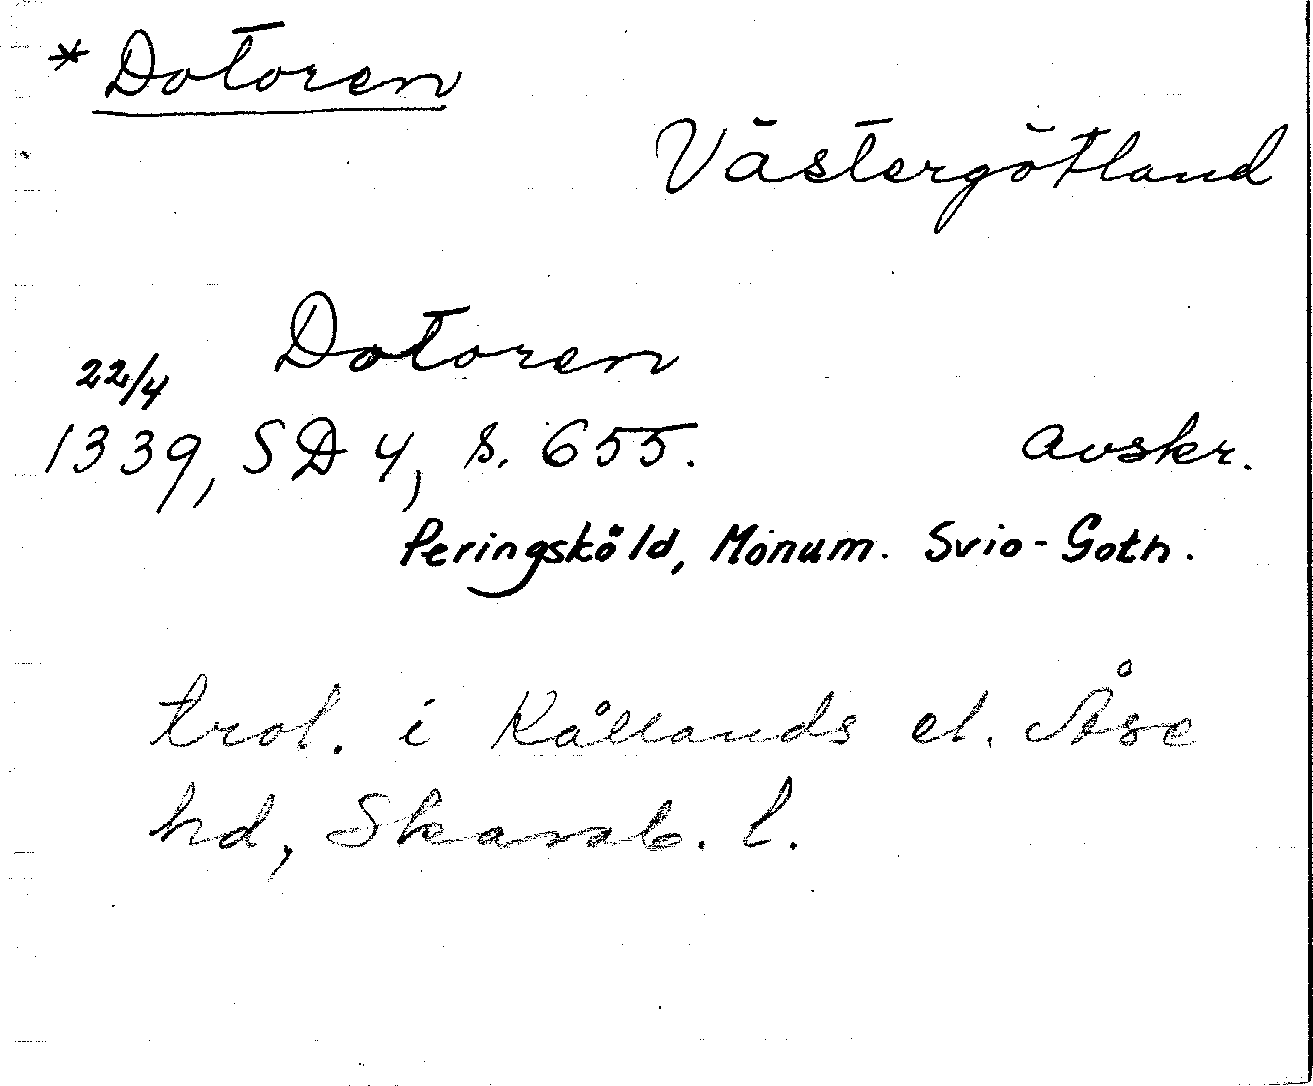 * Dotoren
Västergötland
Dotoren
22/4
1339, SD 4, s. 655. avskr.
Peringsköld, Monum. Svio-Goth.
trol. i Kållands el. Åse
hd, Skarab. l.